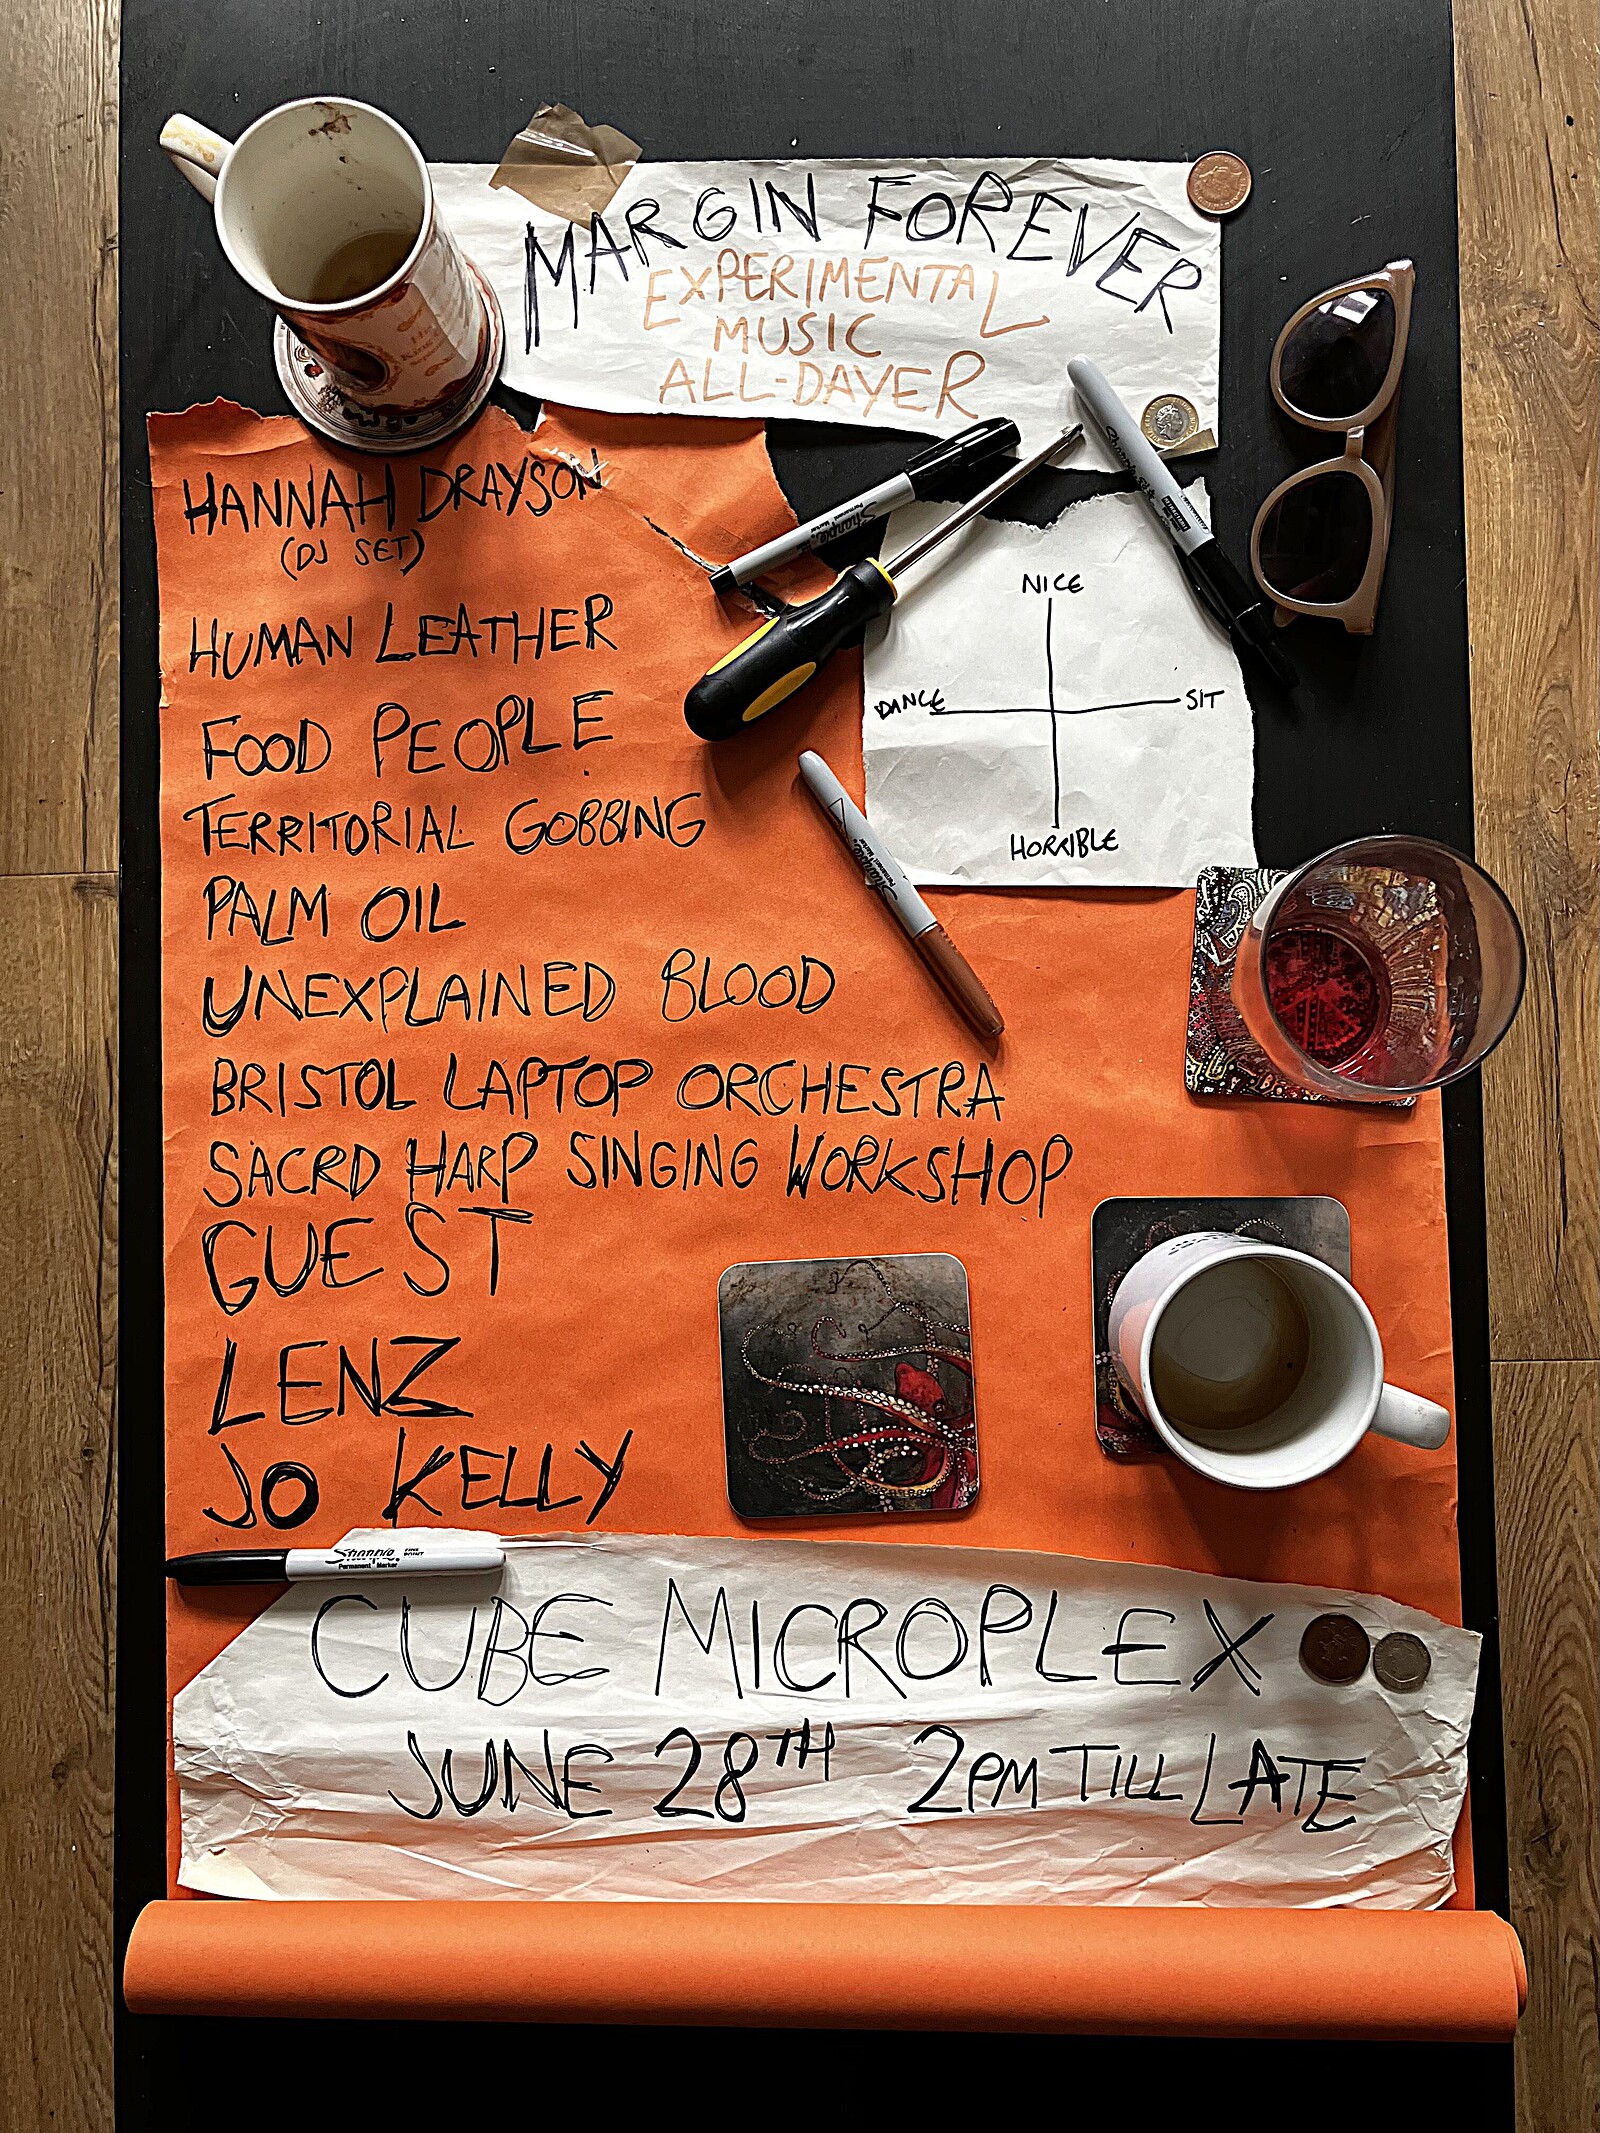 MARGIN FOREVER
EXPERIMENTAL
MUSIC
ALL-DAYER
HANNAH DRAYSON
(DJ SET)
HUMAN LEATHER
FOOD PEOPLE
TERRITORIAL GOBBING
PALM OIL
UNEXPLAINED BLOOD
BRISTOL LAPTOP ORCHESTRA
SACRD HARP SINGING WORKSHOP
GUEST
LENZ
JO KELLY
NICE
DANCE
SIT
HORRIBLE
Sharpie
Permanent Marker
Sharpie
Sharpie
Permanent Marker
Sharpie. FINE POINT
Permanent Marker
CUBE MICROPLEX
JUNE 28TH 2PM TILL LATE